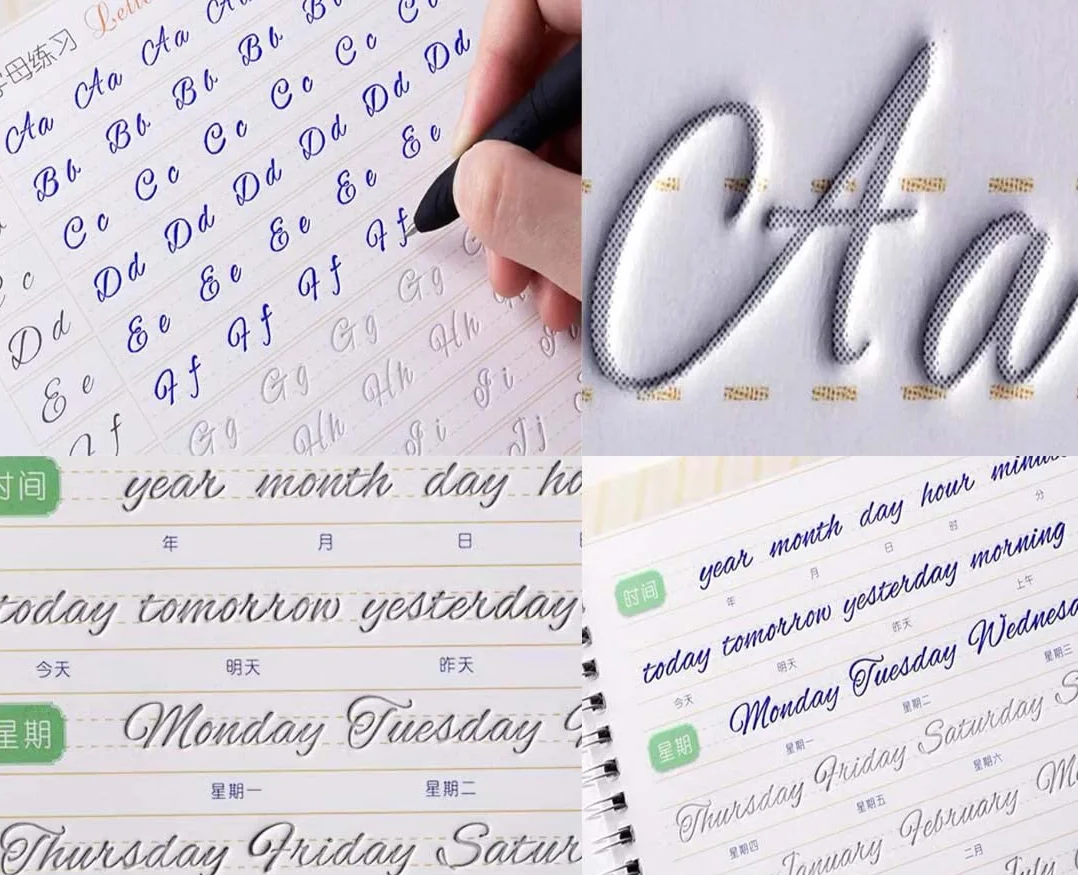 字母练习
Aa Aa Aa Aa
Bb Bb Bb Bb
Cc Cc Cc Cc
Dd Dd Dd Dd Dd Dd
Ee Ee Ee Ee Ee
Ff Ff Ff Ff
Gg Gg Gg
Hh Hh Hh
Ii Ii
Jj
Aa
时间 year month day
年 月 日
today tomorrow yesterday
今天 明天 昨天
星期 Monday Tuesday
星期一 星期二
Thursday Friday
时间 year month day hour
年 月 日 时 分
today tomorrow yesterday morning
今天 明天 昨天 上午
星期 Monday Tuesday
星期一 星期二 星期三
Thursday Friday Saturday
星期四 星期五 星期六
January February
二月
July